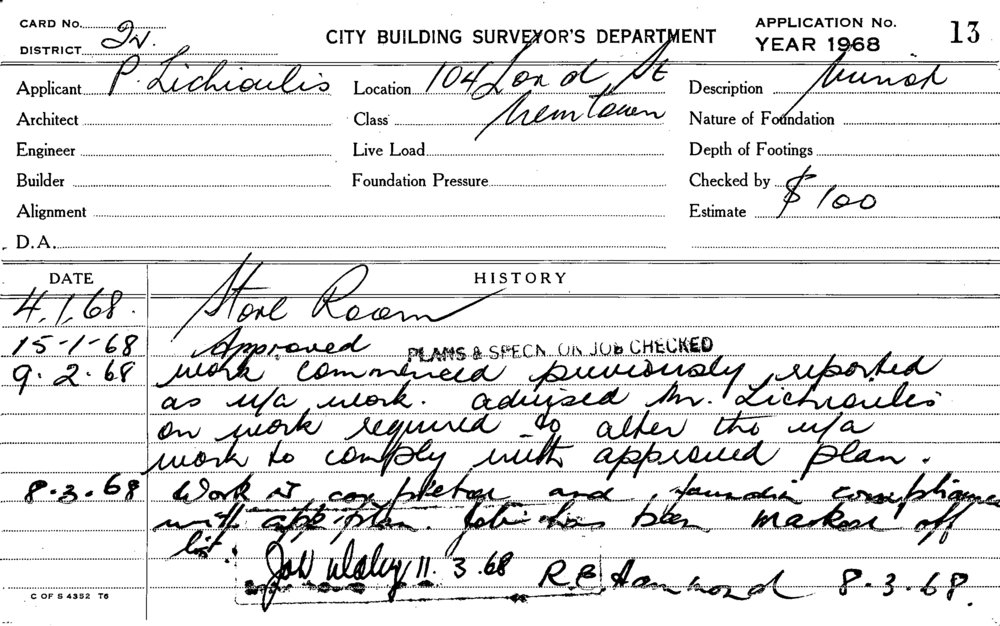 CARD No. 
DISTRICT Iv.
CITY BUILDING SURVEYOR'S DEPARTMENT
APPLICATION No. 13
YEAR 1968
Applicant P. Lichioulis Location 104 Lord St Description
Architect Class Newtown Nature of Foundation
Engineer Live Load Depth of Footings
Builder Foundation Pressure Checked by
Alignment Estimate $100
D.A.
DATE HISTORY
4.1.68. Store Room
15-1-68 Approved PLANS & SPECN. ON JOB CHECKED
9.2.68 work commenced previously reported
as u/a work. advised Mr. Lichioulis
on work required to alter the u/a
work to comply with approved plan.
8.3.68 Work is completed and found in compliance
with app plan. Job has been marked off
list.
11.3.68 R E Hammond 8.3.68.
C OF S 4352 T6